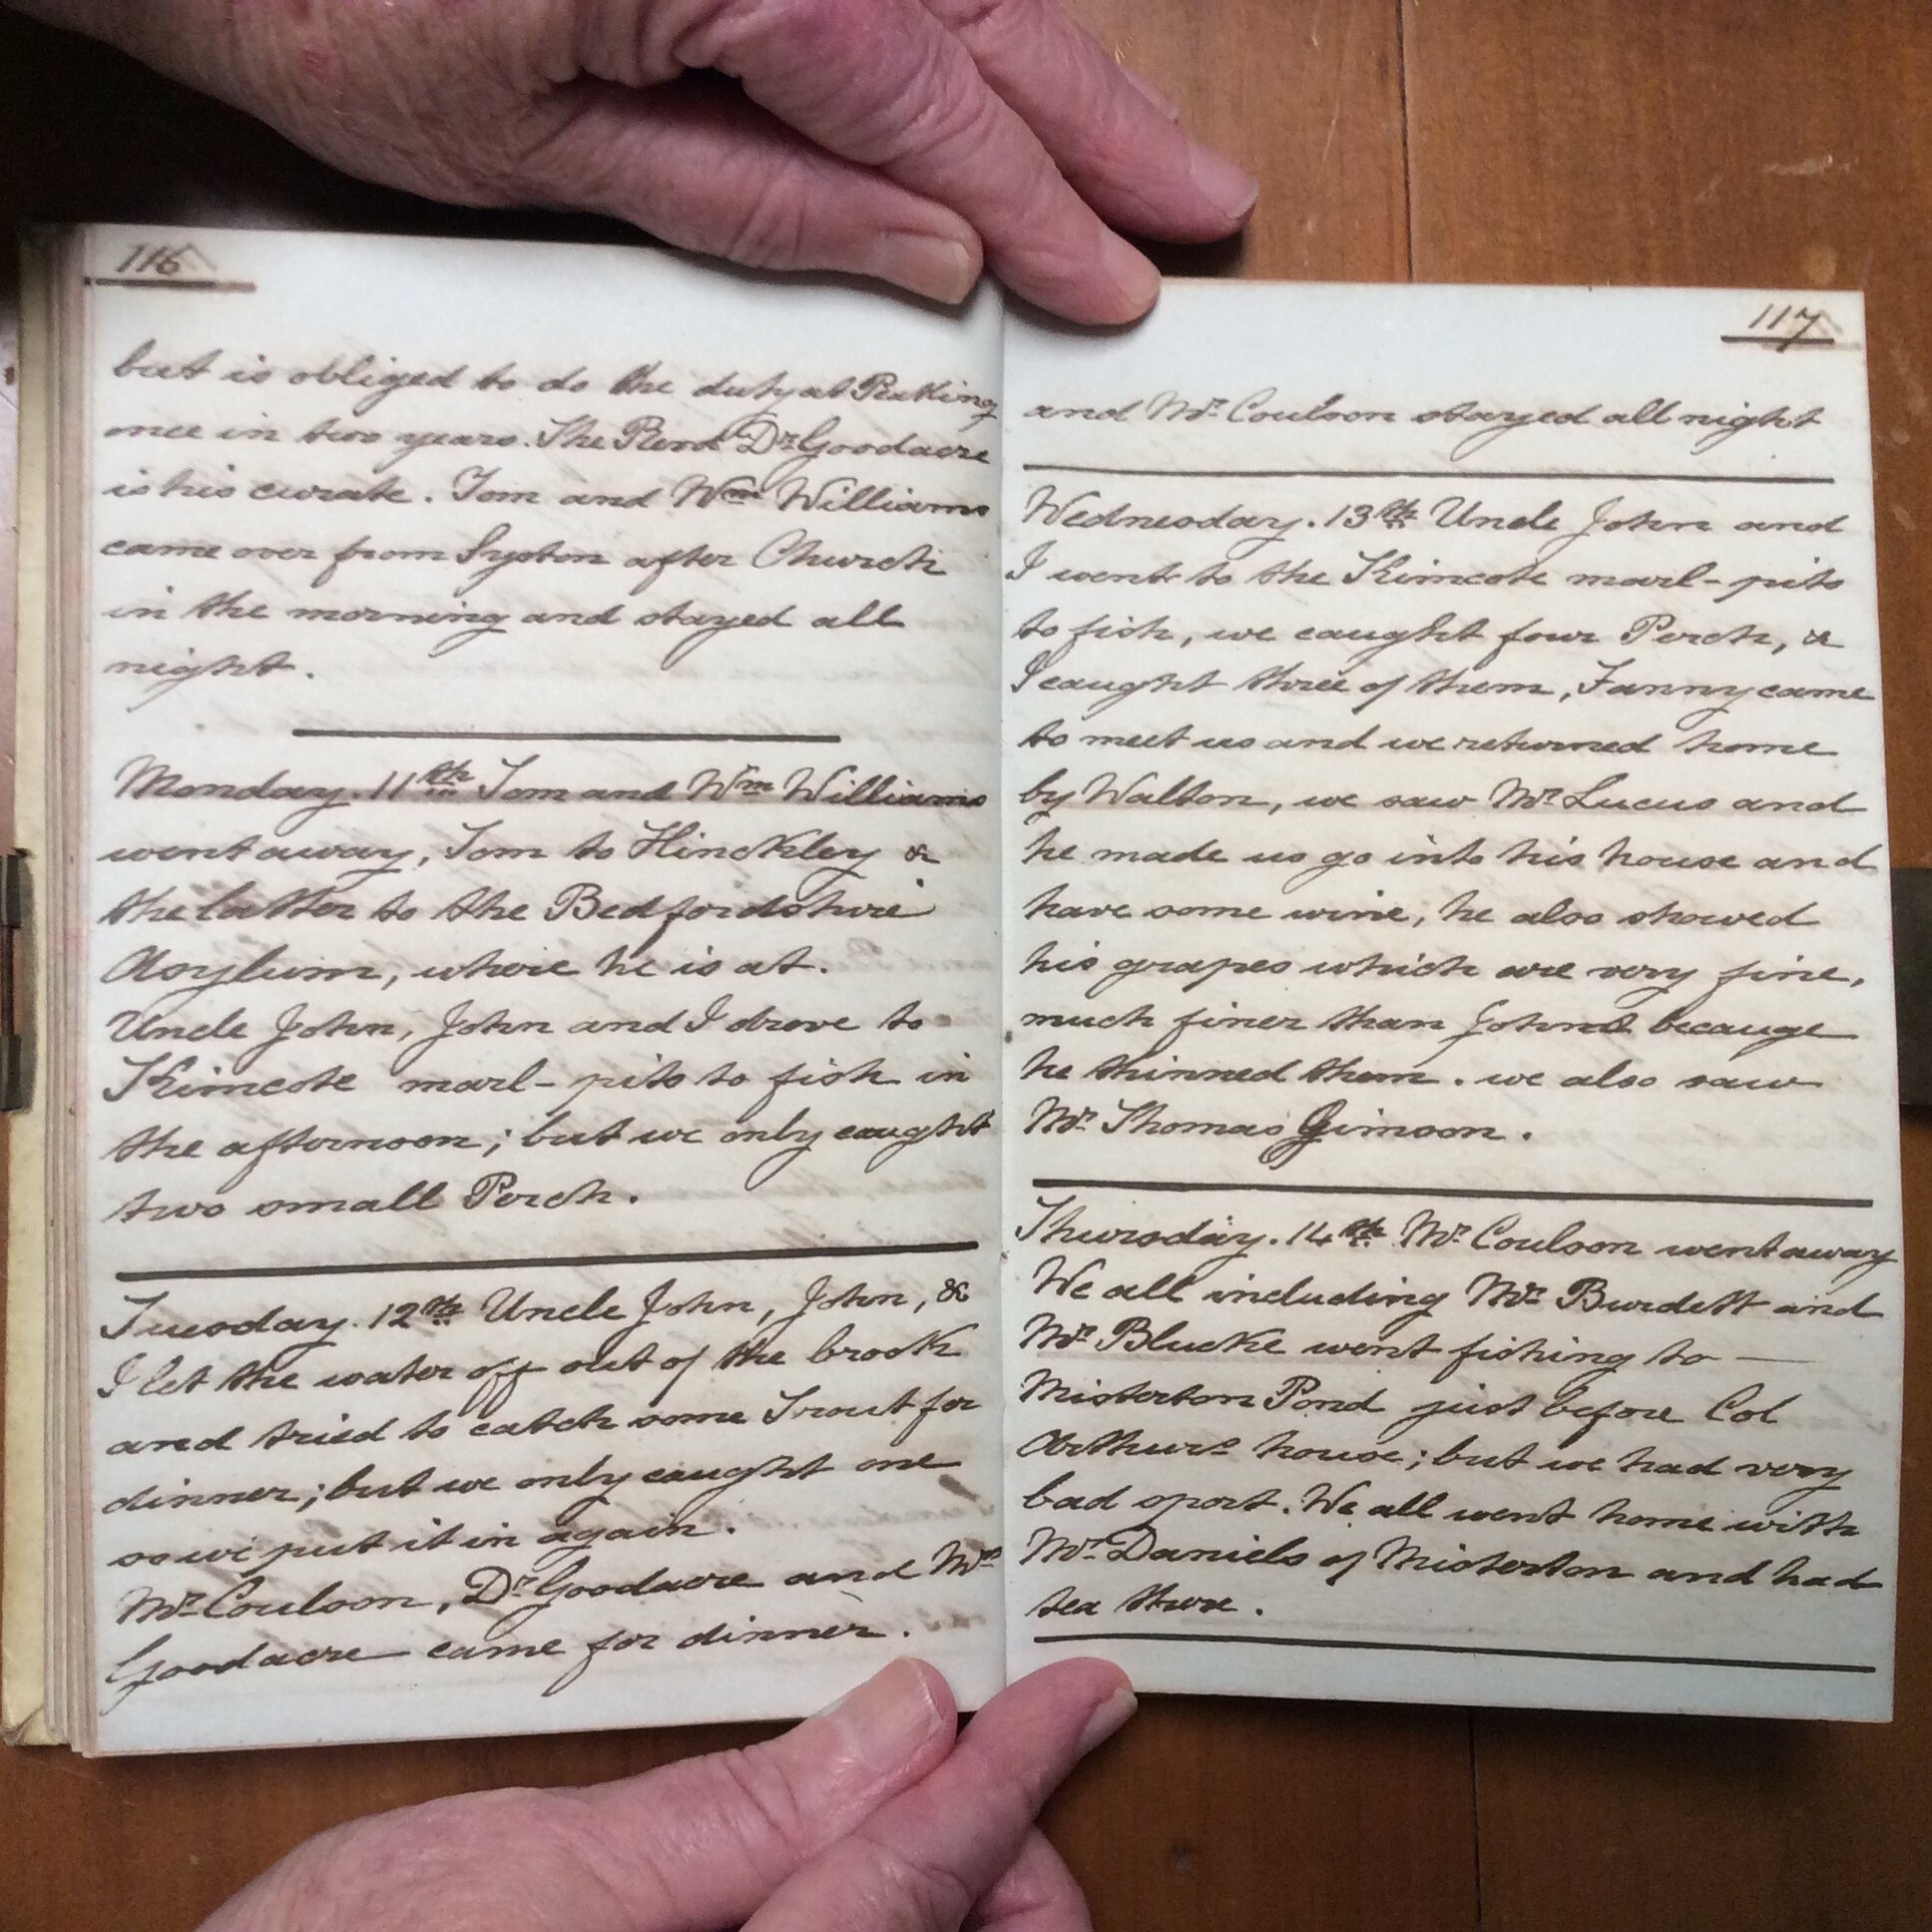 116
but is obliged to do the duty at
once in two years. The Revd Dr Goodacre
is his curate. Tom and Wm Williams
came over from Syston after Church
in the morning and stayed all
night.
Monday. 11th Tom and Wm Williams
went away, Tom to Hinckley &
the latter to the Bedfordshire
Asylum, where he is at.
Uncle John, John and I drove to
Kimcote marl-pits to fish in
the afternoon; but we only caught
two small Perch.
Tuesday. 12th Uncle John, John, &
I let the water off out of the brook
and tried to catch some Trout for
dinner; but we only caught one
so we put it in again.
Mr Coulson, Dr Goodacre and Mrs
Goodacre came for dinner.
117
and Mr Coulson stayed all night
Wednesday. 13th Uncle John and
I went to the Kimcote marl-pits
to fish, we caught four Perch, &
I caught three of them, Fanny came
to meet us and we returned home
by Walton, we saw Mr Lucus and
he made us go into his house and
have some wine, he also showed
his grapes which are very fine,
much finer than Johns becauge
he thinned them. we also saw
Mr Thomas Gimson.
Thursday. 14th Mr Coulson went away
We all including Mr Burdett and
Mr Blucke went fishing to —
Misterton Pond just before Col
Arthurs house; but we had very
bad sport. We all went home with
Mr Daniels of Misterton and had
tea there.